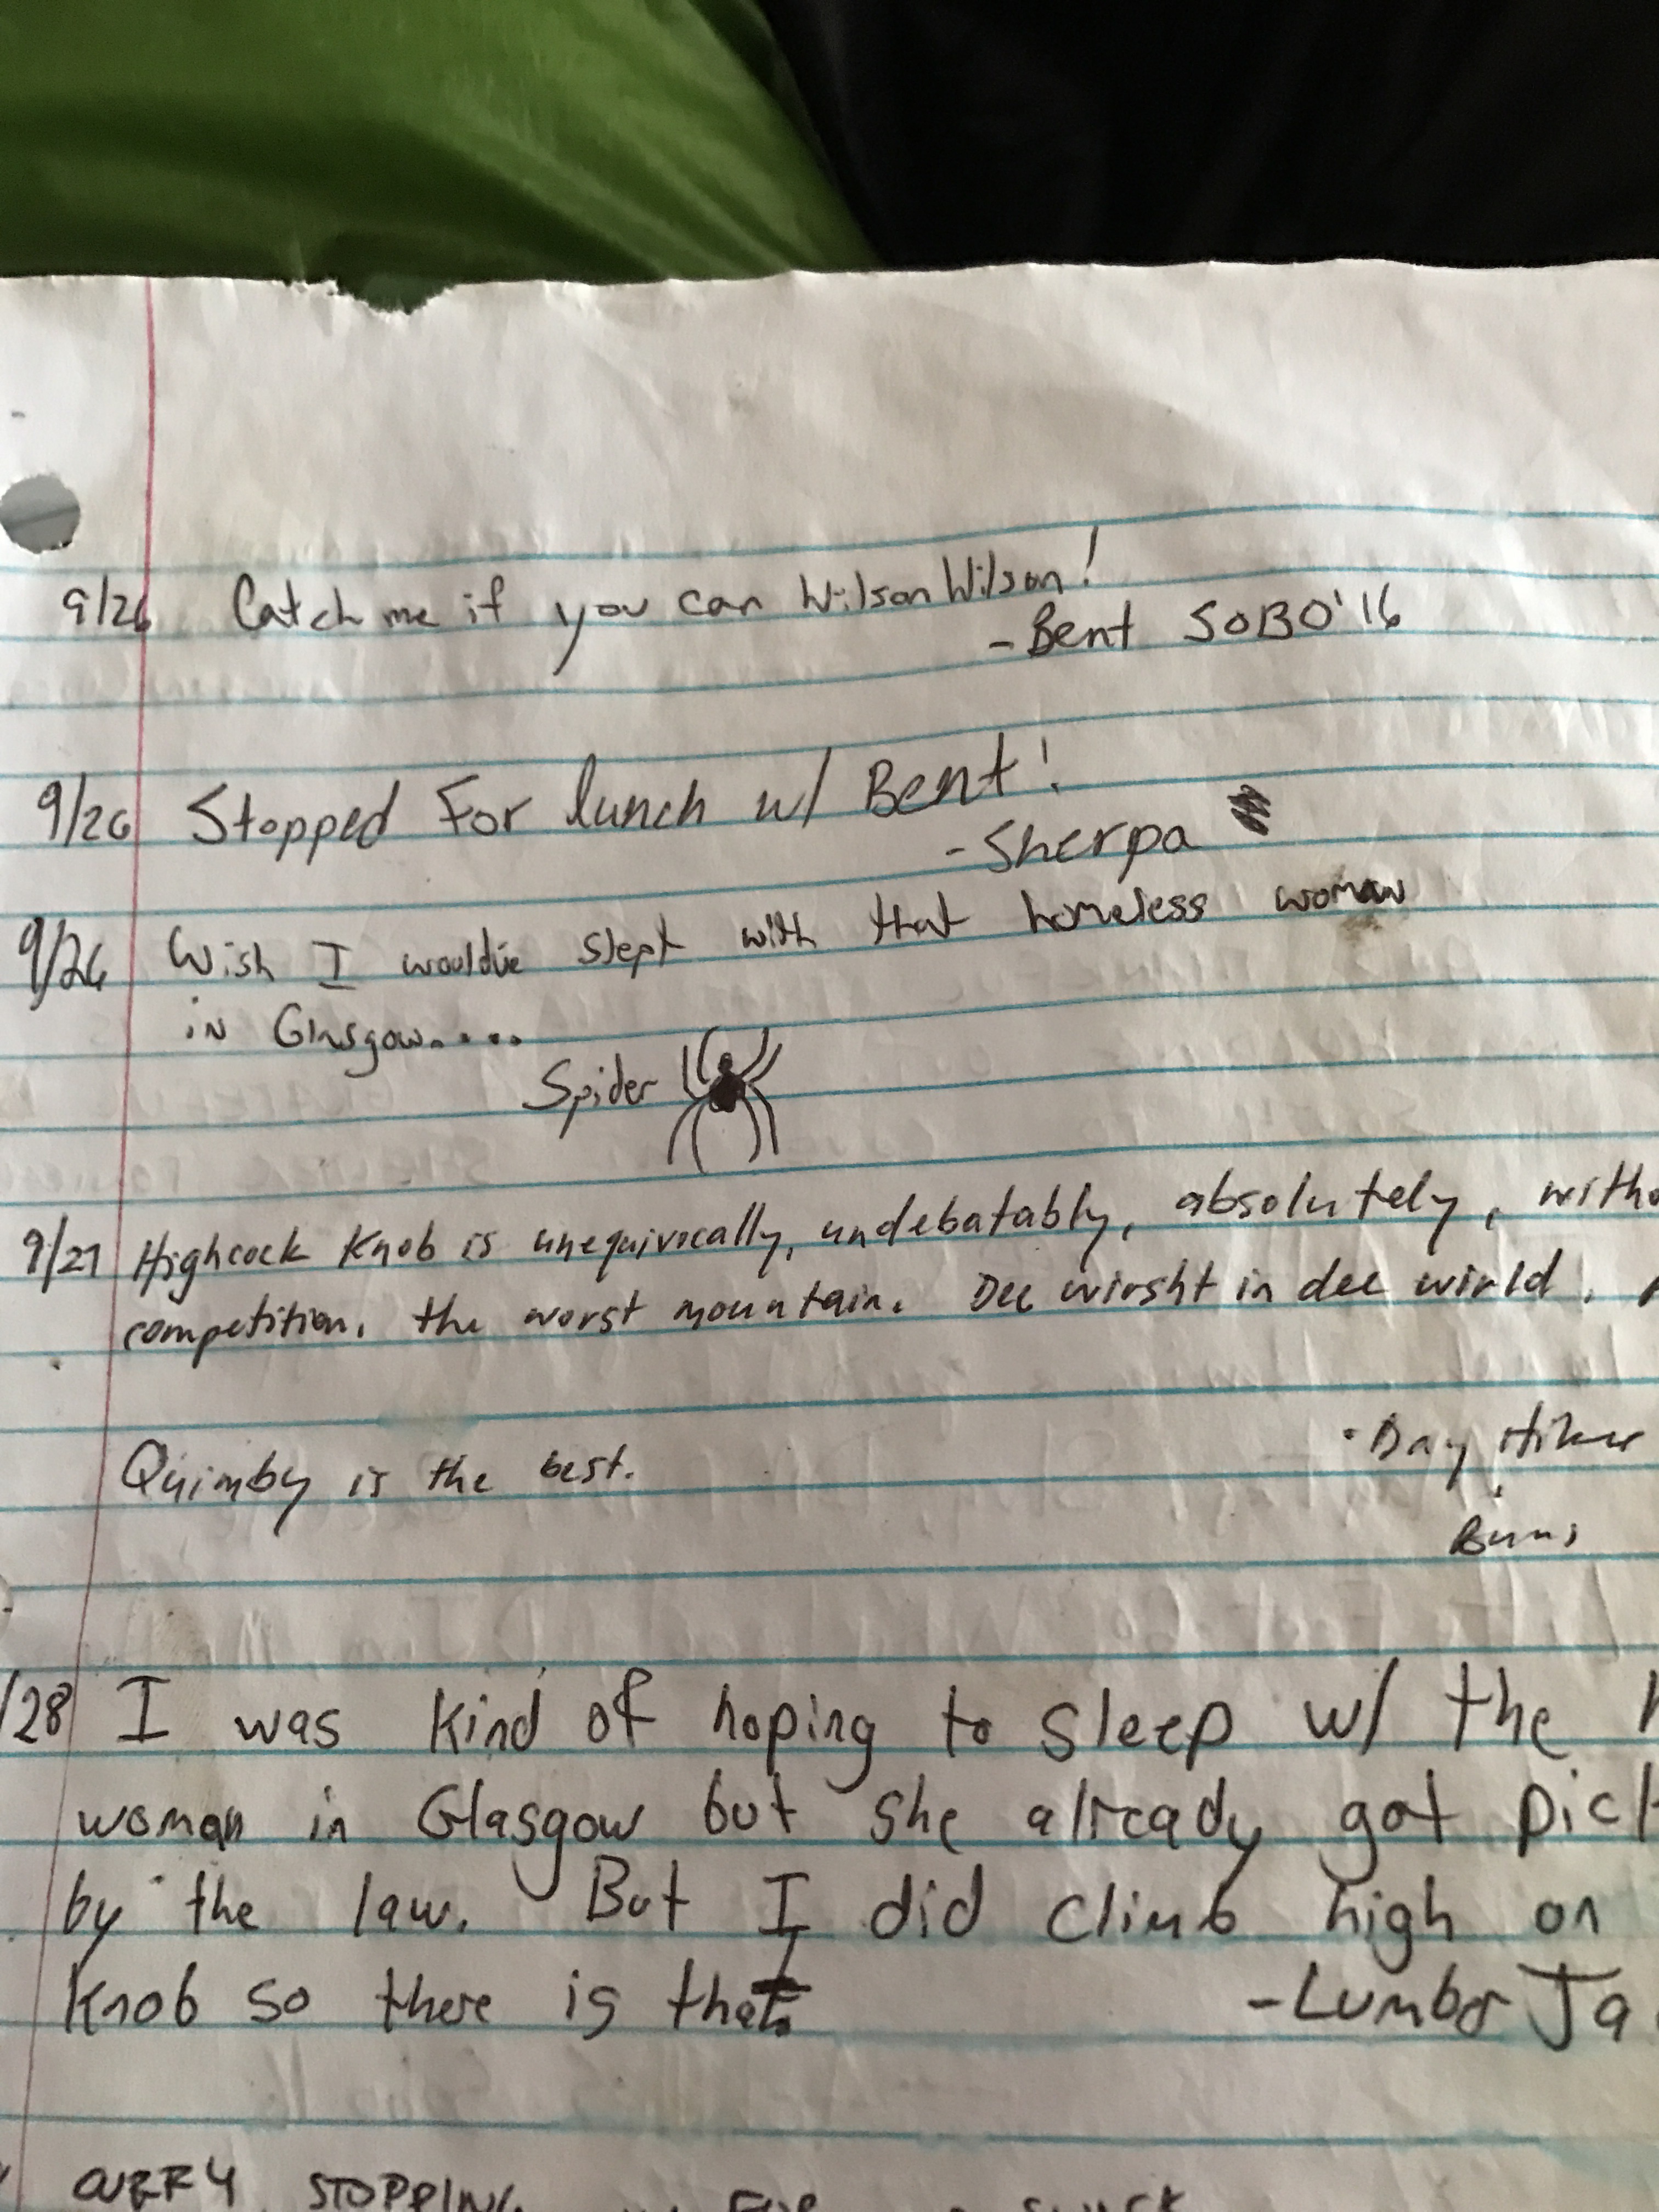 9/26 Catch me if you can Wilson Wilson!
- Bent SOBO '16
9/26 Stopped For lunch w/ Bent!
- Sherpa
9/26 Wish I would've slept with that homeless woman
in Glasgow.....
Spider
9/27 Highcock Knob is unequivocally, undebatably, absolutely, witho
competition, the worst mountain. Dee wirsht in dee wirld.
Quimby is the best.
· Day Hiker
/28 I was kind of hoping to sleep w/ the h
woman in Glasgow but she already got pick
by the law. But I did climb high on
Knob so there is that.
- Lumber Ja
STOPPING FOR a SNACK